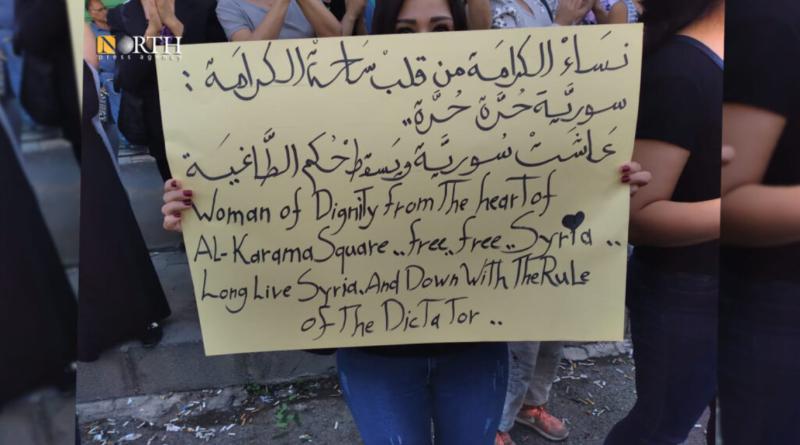 NORTH
press agency
نساء الكرامة من قلب ساحة الكرامة :
سوريَّة حُرَّة حُرَّة..
عَاشَتْ سُوريَّة ويَسقط حُكم الطَّاغيَة
Woman of Dignity from The heart of
AL-Karama Square .. free.. free.. Syria ..
Long Live Syria. And Down With The Rule
of The DicTaTor ..